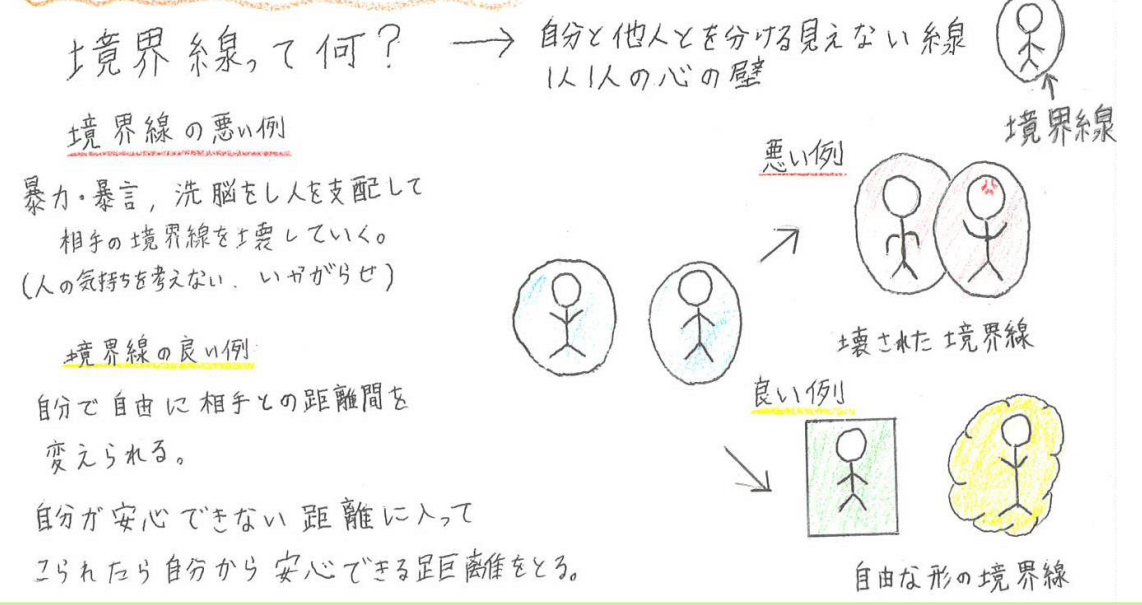 境界線って何？ → 自分と他人とを分ける見えない線
1人1人の心の壁
境界線
境界線の悪い例
暴力・暴言，洗脳をし人を支配して
相手の境界線を壊していく。
(人の気持ちを考えない、いやがらせ)
境界線の良い例
自分で自由に相手との距離間を
変えられる。
自分が安心できない距離に入って
こられたら自分から安心できる距離をとる。
悪い例
壊された境界線
良い例
自由な形の境界線